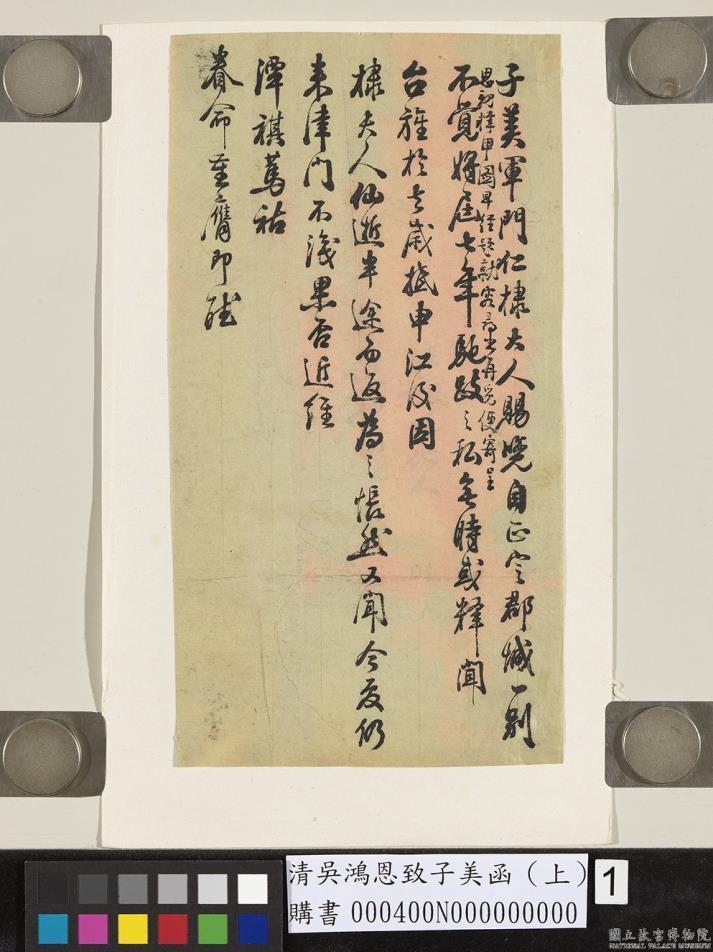 子美軍門仁棣大人賜覽自正定郡城一別
思初釋甲圖早經題就容尋出再覓便寄呈
不覺將屆七年馳跂之私無時或釋聞
台旌於去歲抵申江後因
棣夫人仙逝半途而返為之悵然又聞今夏仍
來津門不識果否近維
潭祺萬祜
眷命重膺即
清吳鴻恩致子美函（上）
購書 000400N000000000
1
國立故宮博物院
NATIONAL PALACE MUSEUM